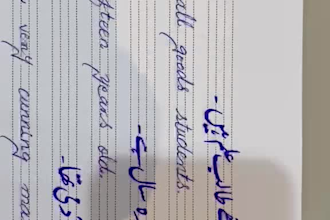 طالب علم ہیں-
all goods students.
سال ہے-
fteen years old.
تھا-
very cunning ma